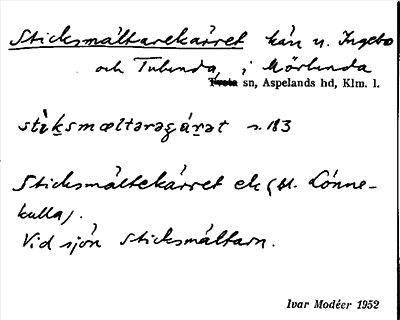 Sticksmåltarekärret kärr n. Ingebo
och Tulunda, i Mörlunda
Tveta sn, Aspelands hd, Klm. l.
stìksmæltaragárat s. 183
Sticksmåltekärret ek (bl. Lönne-
kulla).
Vid sjön Sticksmåltarn.
Ivar Modéer 1952